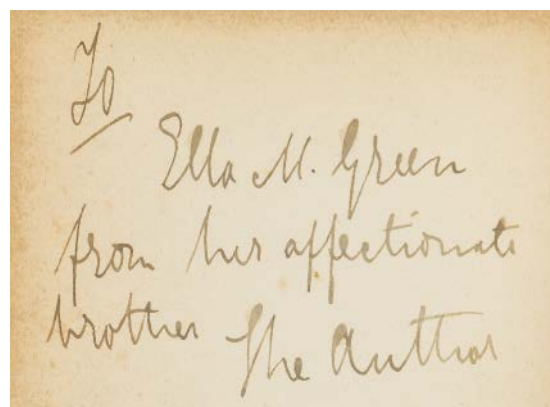 To
Ella M. Green
from her affectionate
brother The Author